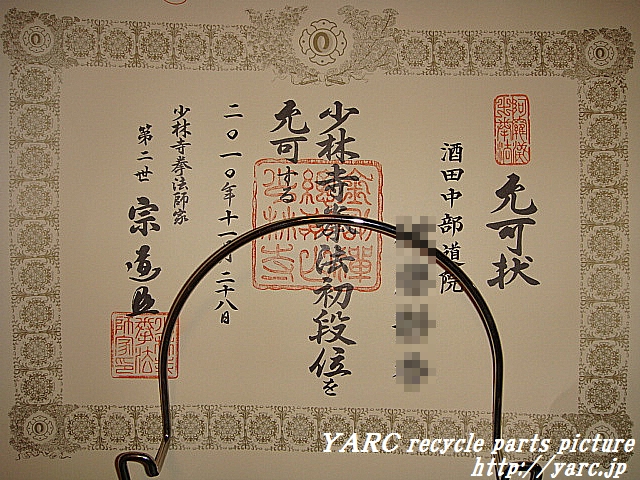 允可状
酒田中部道院
少林寺拳法初段位を
允可する
二〇一〇年十一月二十八日
少林寺拳法師家
第二世 宗道臣
YARC recycle parts picture
http://yarc.jp